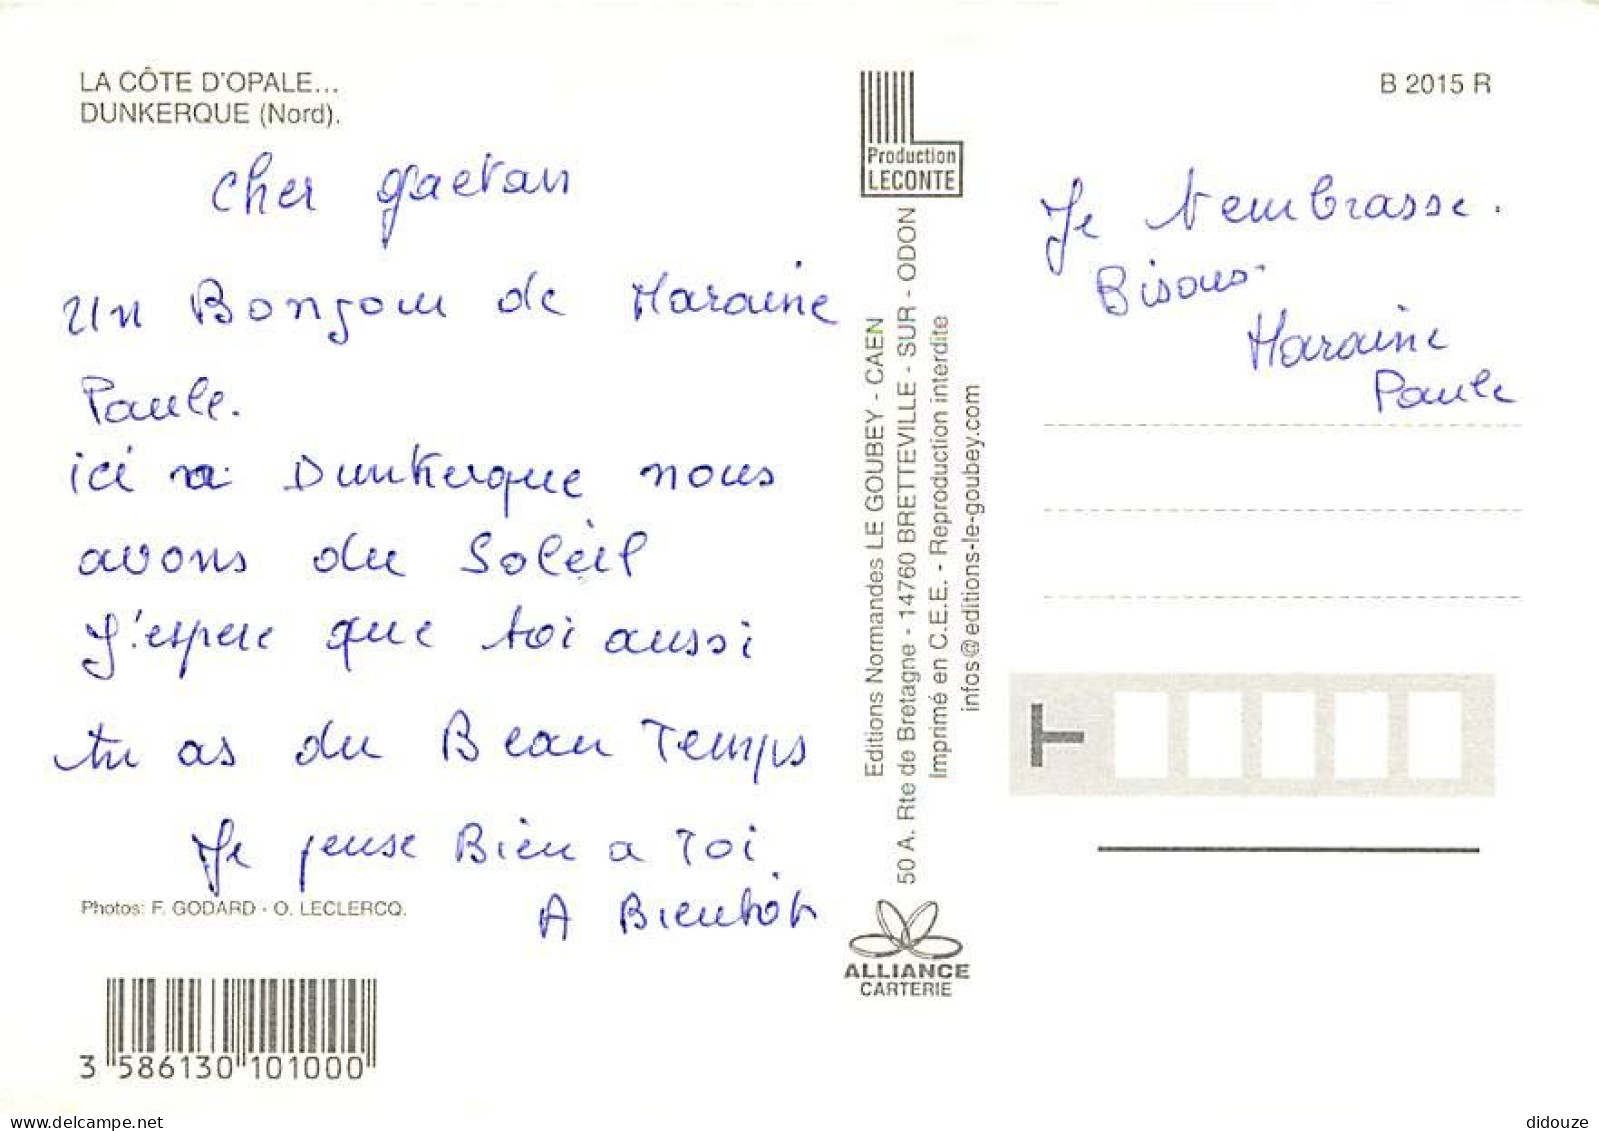 LA CÔTE D'OPALE...
DUNKERQUE (Nord).
Cher gaetan
Un Bonjour de Maraine
Paule.
ici a Dunkerque nous
avons du Soleil
J'espere que toi aussi
tu as du Beau Temps
Je pense Bien a Toi
A Bientôt
Photos: F. GODARD - O. LECLERCQ.
3 586130 101000
Production
LECONTE
Editions Normandes LE GOUBEY - CAEN
50 A. Rte de Bretagne - 14760 BRETTEVILLE - SUR - ODON
Imprimé en C.E.E. - Reproduction interdite
infos@editions-le-goubey.com
ALLIANCE
CARTERIE
B 2015 R
Je t'embrasse.
Bisous.
Maraine
Paule
T
didouze